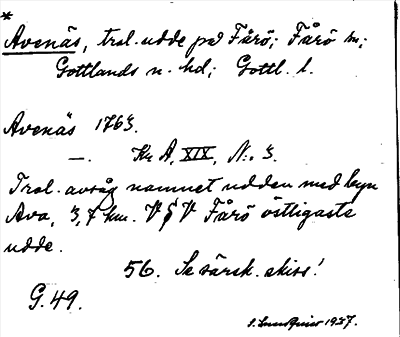 *
Avenäs, trol. udde på Fårö; Fårö sn;
Gottlands n. hd; Gottl. l.
Avenäs 1763.
—. Kr A, XIX, N:o 3.
Trol. avsåg namnet udden med byn
Ava, 3,7 km. V § V Fårö östligaste
udde.
56. Se särsk. skiss!
G. 49.
1937.